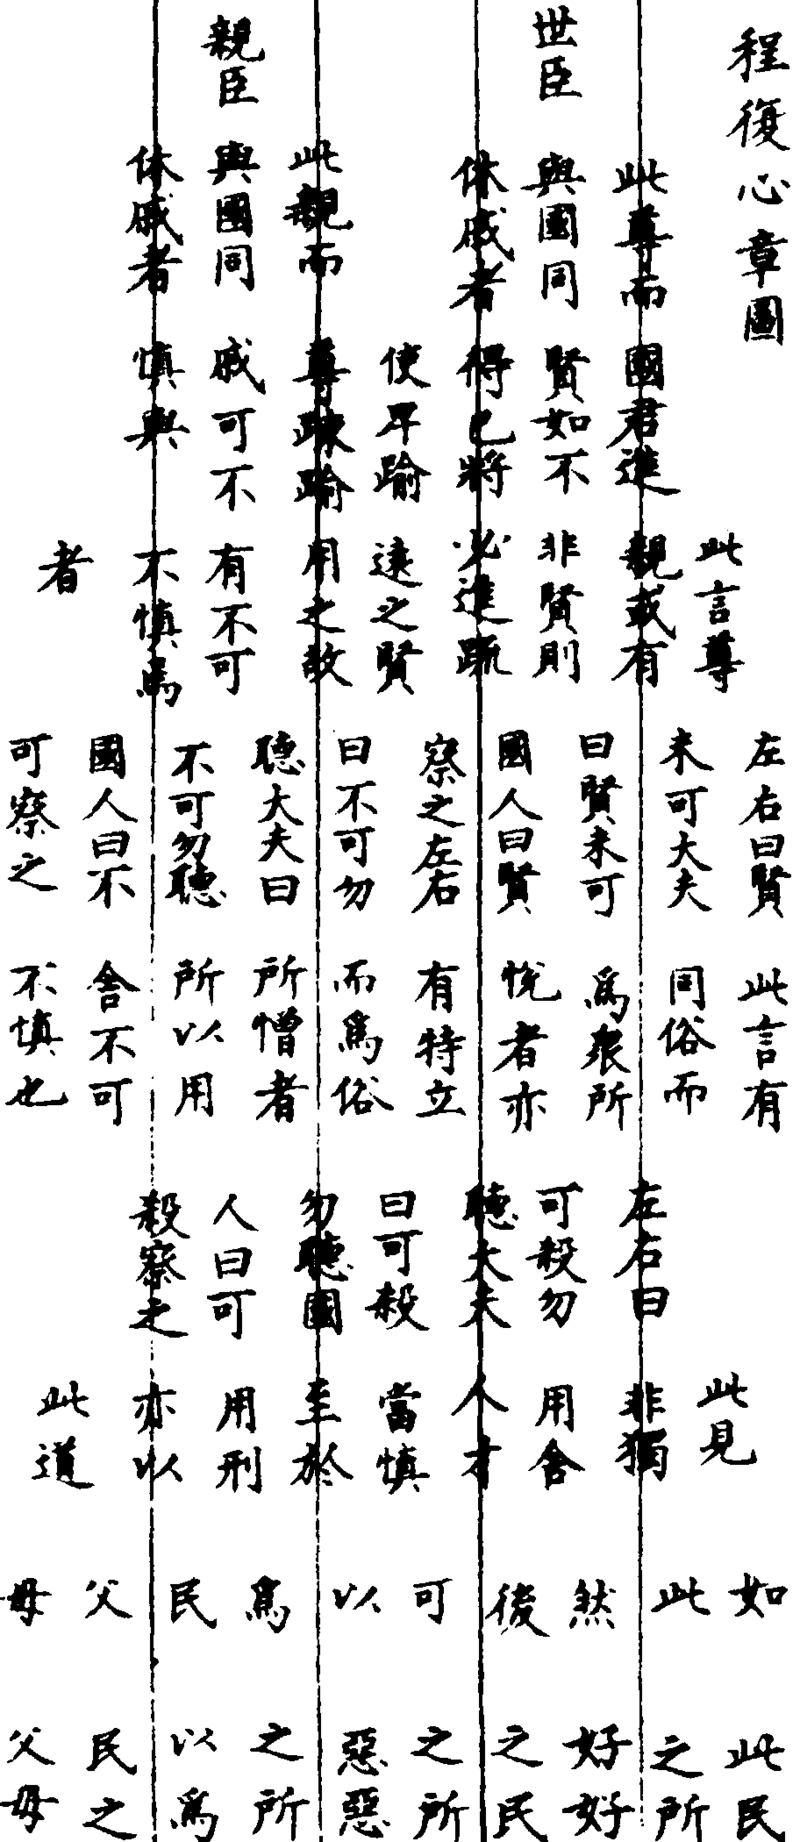 程復心章圖
世臣
親臣
此尊而
與國同
休戚者
此親而
與國同
休戚者
國君進
賢如不
得已將
使卑踰
尊踈踰
戚可不
慎與
此言尊
親或有
非賢則
必進踈
遠之賢
用之故
有不可
不慎焉
者
左右曰賢
未可大夫
曰賢未可
國人曰賢
察之左右
曰不可勿
聽大夫曰
不可勿聽
國人曰不
可察之
此言有
同俗而
爲衆所
悅者亦
有特立
而爲俗
所憎者
所以用
舍不可
不慎也
左右曰
可殺勿
聽大夫
曰可殺
勿聽國
人曰可
殺察之
此見
非獨
用舍
人才
當慎
至於
用刑
亦以
此道
如此然後可以爲民父母
此民
之所
好好
之民
之所
惡惡
之所
以爲
民之
父母